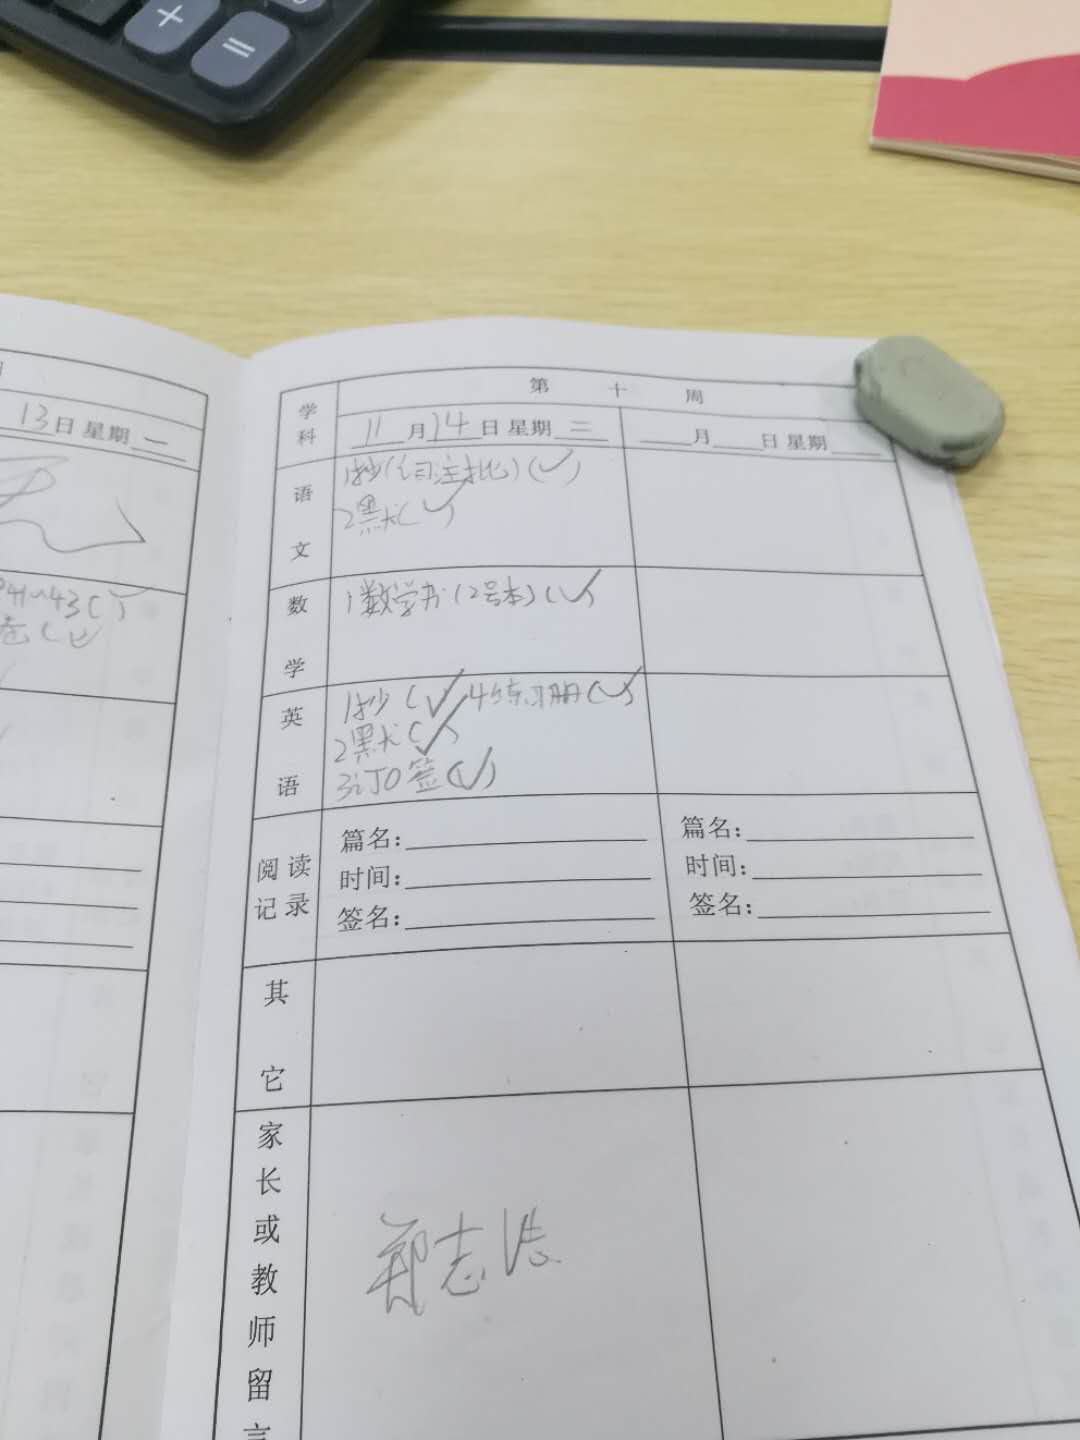 +
=
13日 星期一
41~43( )
卷(✓)
学科
第 十 周
11月14日 星期二
月 日 星期
语文
1抄(词注批)(✓)
2默(✓)
数学
1数学书(2号本)(✓)
英语
1抄(✓) 4练习册(✓)
2默(✓)
3订J0签(✓)
阅读记录
篇名:
时间:
签名:
篇名:
时间:
签名:
其它
家长或教师留言
郑志浩